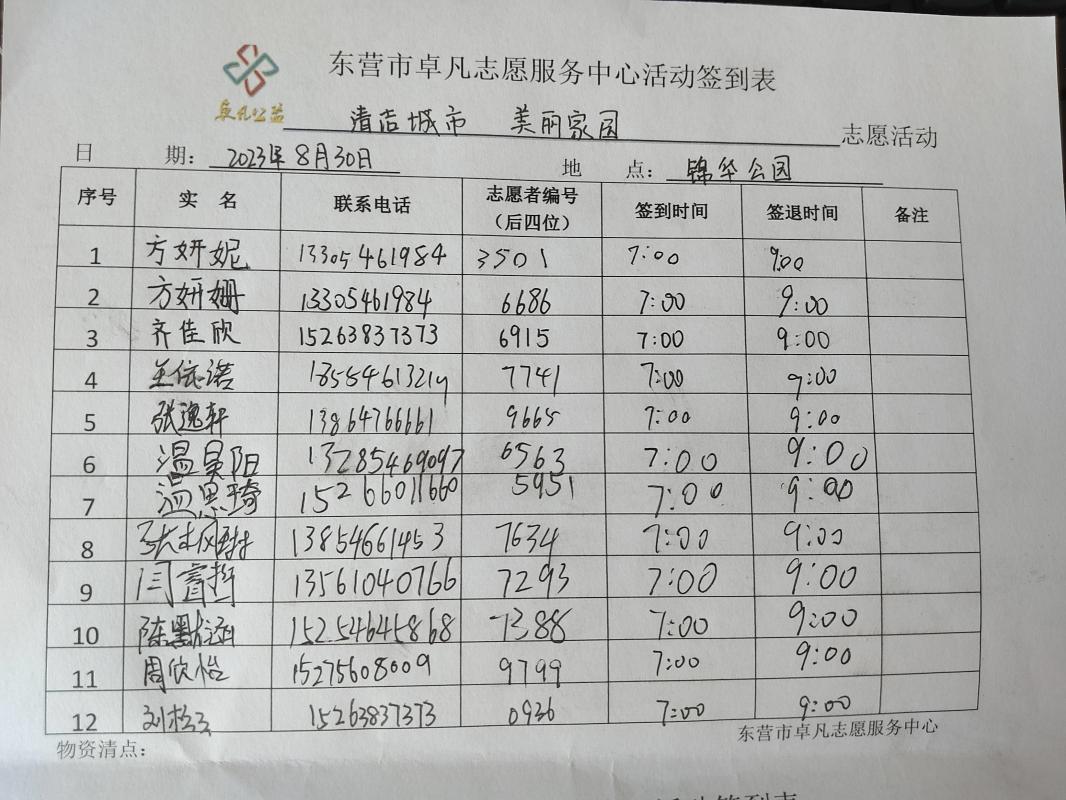 东营市卓凡志愿服务中心活动签到表
卓凡公益
清洁城市 美丽家园 志愿活动
日 期: 2023年8月30日 地 点: 锦华公园
序号 实 名 联系电话 志愿者编号（后四位） 签到时间 签退时间 备注
1 方妍妮 13305461984 3501 7:00 9:00
2 方妍姗 13305461984 6686 7:00 9:00
3 齐佳欣 15263837373 6915 7:00 9:00
4 王依诺 18554613214 7741 7:00 9:00
5 张逸轩 13864766661 9665 7:00 9:00
6 温昊阳 13285469097 6563 7:00 9:00
7 温思琦 15266011660 5951 7:00 9:00
8 13854661453 7634 7:00 9:00
9 闫睿哲 13561040766 7293 7:00 9:00
10 陈默涵 15254645868 7388 7:00 9:00
11 周欣怡 15275608009 9799 7:00 9:00
12 15263837373 0936 7:00 9:00
物资清点: 东营市卓凡志愿服务中心